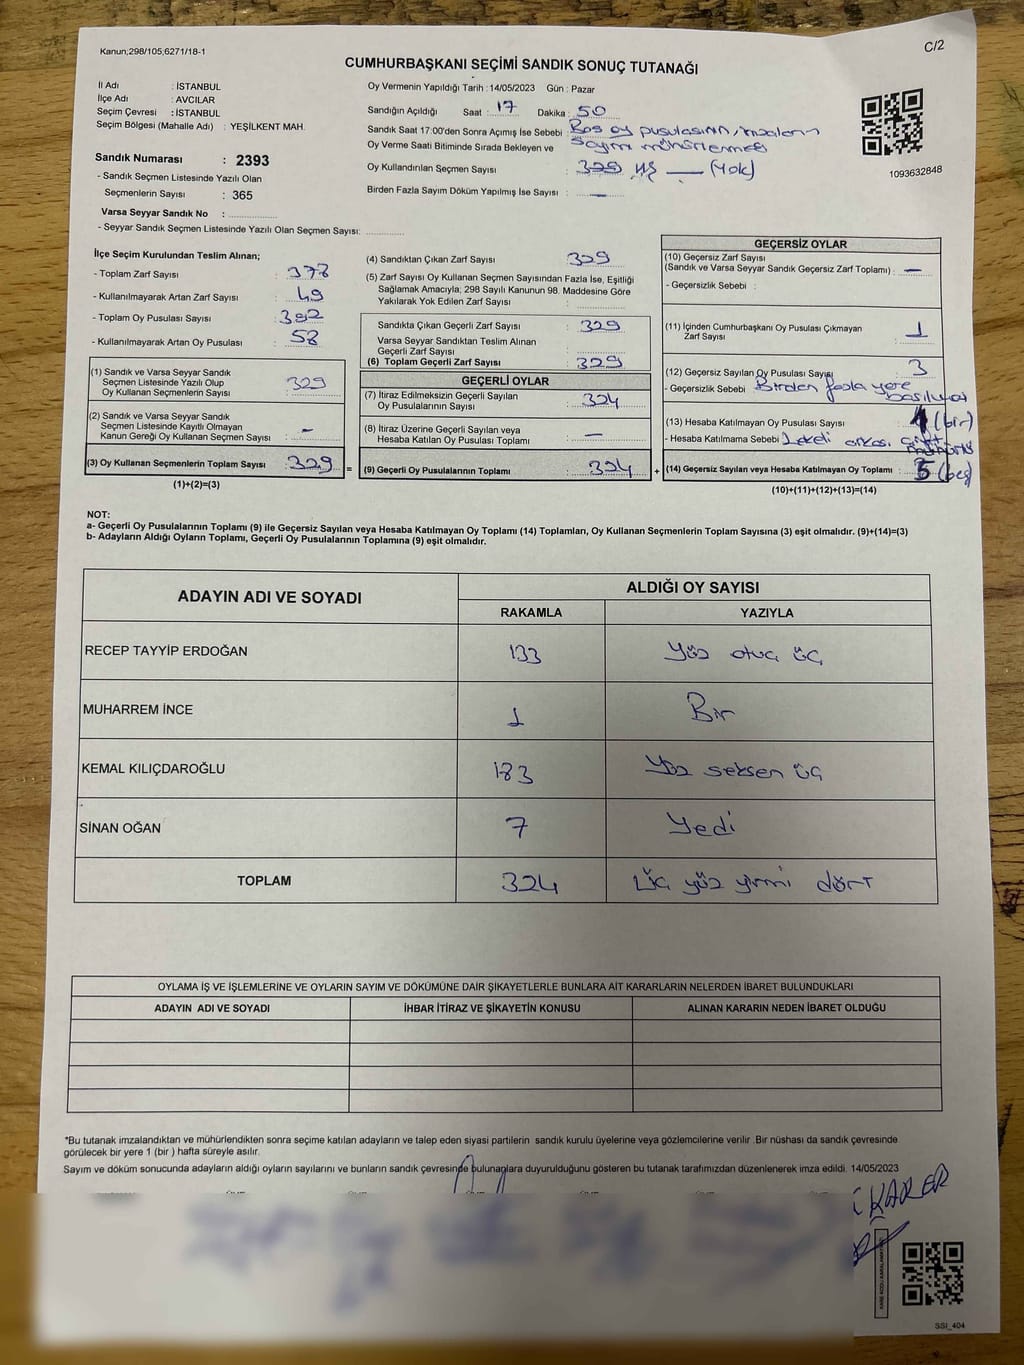 Kanun;298/105,6271/18-1
C/2
CUMHURBAŞKANI SEÇİMİ SANDIK SONUÇ TUTANAĞI
İl Adı : İSTANBUL
İlçe Adı : AVCILAR
Seçim Çevresi : İSTANBUL
Seçim Bölgesi (Mahalle Adı) : YEŞİLKENT MAH.
Sandık Numarası : 2393
- Sandık Seçmen Listesinde Yazılı Olan
Seçmenlerin Sayısı : 365
Varsa Seyyar Sandık No :
- Seyyar Sandık Seçmen Listesinde Yazılı Olan Seçmen Sayısı:
Oy Vermenin Yapıldığı Tarih : 14/05/2023 Gün : Pazar
Sandığın Açıldığı Saat : 17 Dakika : 50
Sandık Saat 17:00'den Sonra Açımış İse Sebebi : Boş oy pusulasının, imzaların
Oy Verme Saati Bitiminde Sırada Bekleyen ve sayım mühürlenmesi
Oy Kullandırılan Seçmen Sayısı : 329 — (Yok)
Birden Fazla Sayım Döküm Yapılmış İse Sayısı : —
1093632848
İlçe Seçim Kurulundan Teslim Alınan;
- Toplam Zarf Sayısı : 378
- Kullanılmayarak Artan Zarf Sayısı : 49
- Toplam Oy Pusulası Sayısı : 382
- Kullanılmayarak Artan Oy Pusulası : 58
(1) Sandık ve Varsa Seyyar Sandık
Seçmen Listesinde Yazılı Olup
Oy Kullanan Seçmenlerin Sayısı : 329
(2) Sandık ve Varsa Seyyar Sandık
Seçmen Listesinde Kayıtlı Olmayan
Kanun Gereği Oy Kullanan Seçmen Sayısı : —
(3) Oy Kullanan Seçmenlerin Toplam Sayısı : 329 =
(1)+(2)=(3)
(4) Sandıktan Çıkan Zarf Sayısı : 329
(5) Zarf Sayısı Oy Kullanan Seçmen Sayısından Fazla İse, Eşitliği
Sağlamak Amacıyla; 298 Sayılı Kanunun 98. Maddesine Göre
Yakılarak Yok Edilen Zarf Sayısı :
Sandıkta Çıkan Geçerli Zarf Sayısı : 329
Varsa Seyyar Sandıktan Teslim Alınan
Geçerli Zarf Sayısı :
(6) Toplam Geçerli Zarf Sayısı : 329
GEÇERLİ OYLAR
(7) İtiraz Edilmeksizin Geçerli Sayılan
Oy Pusulalarının Sayısı : 324
(8) İtiraz Üzerine Geçerli Sayılan veya
Hesaba Katılan Oy Pusulası Toplamı : —
(9) Geçerli Oy Pusulalarının Toplamı : 324 +
GEÇERSİZ OYLAR
(10) Geçersiz Zarf Sayısı
(Sandık ve Varsa Seyyar Sandık Geçersiz Zarf Toplamı) : —
- Geçersizlik Sebebi :
(11) İçinden Cumhurbaşkanı Oy Pusulası Çıkmayan
Zarf Sayısı : 1
(12) Geçersiz Sayılan Oy Pusulası Sayısı : 3
- Geçersizlik Sebebi : Birden fazla yere
(13) Hesaba Katılmayan Oy Pusulası Sayısı : 1 (bir)
- Hesaba Katılmama Sebebi : Lekeli arkası çift
(14) Geçersiz Sayılan veya Hesaba Katılmayan Oy Toplamı : 5 (beş)
(10)+(11)+(12)+(13)=(14)
NOT:
a- Geçerli Oy Pusulalarının Toplamı (9) ile Geçersiz Sayılan veya Hesaba Katılmayan Oy Toplamı (14) Toplamları, Oy Kullanan Seçmenlerin Toplam Sayısına (3) eşit olmalıdır. (9)+(14)=(3)
b- Adayların Aldığı Oyların Toplamı, Geçerli Oy Pusulalarının Toplamına (9) eşit olmalıdır.
ADAYIN ADI VE SOYADI
ALDIĞI OY SAYISI
RAKAMLA YAZIYLA
RECEP TAYYİP ERDOĞAN 133 Yüz otuz üç
MUHARREM İNCE 1 Bir
KEMAL KILIÇDAROĞLU 183 Yüz seksen üç
SİNAN OĞAN 7 Yedi
TOPLAM 324 Üç yüz yirmi dört
OYLAMA İŞ VE İŞLEMLERİNE VE OYLARIN SAYIM VE DÖKÜMÜNE DAİR ŞİKAYETLERLE BUNLARA AİT KARARLARIN NELERDEN İBARET BULUNDUKLARI
ADAYIN ADI VE SOYADI İHBAR İTİRAZ VE ŞİKAYETİN KONUSU ALINAN KARARIN NEDEN İBARET OLDUĞU
*Bu tutanak imzalandıktan ve mühürlendikten sonra seçime katılan adayların ve talep eden siyasi partilerin sandık kurulu üyelerine veya gözlemcilerine verilir .Bir nüshası da sandık çevresinde
görülecek bir yere 1 (bir ) hafta süreyle asılır.
Sayım ve döküm sonucunda adayların aldığı oyların sayılarını ve bunların sandık çevresinde bulunanlara duyurulduğunu gösteren bu tutanak tarafımızdan düzenlenerek imza edildi. 14/05/2023
KARER
SSI_404